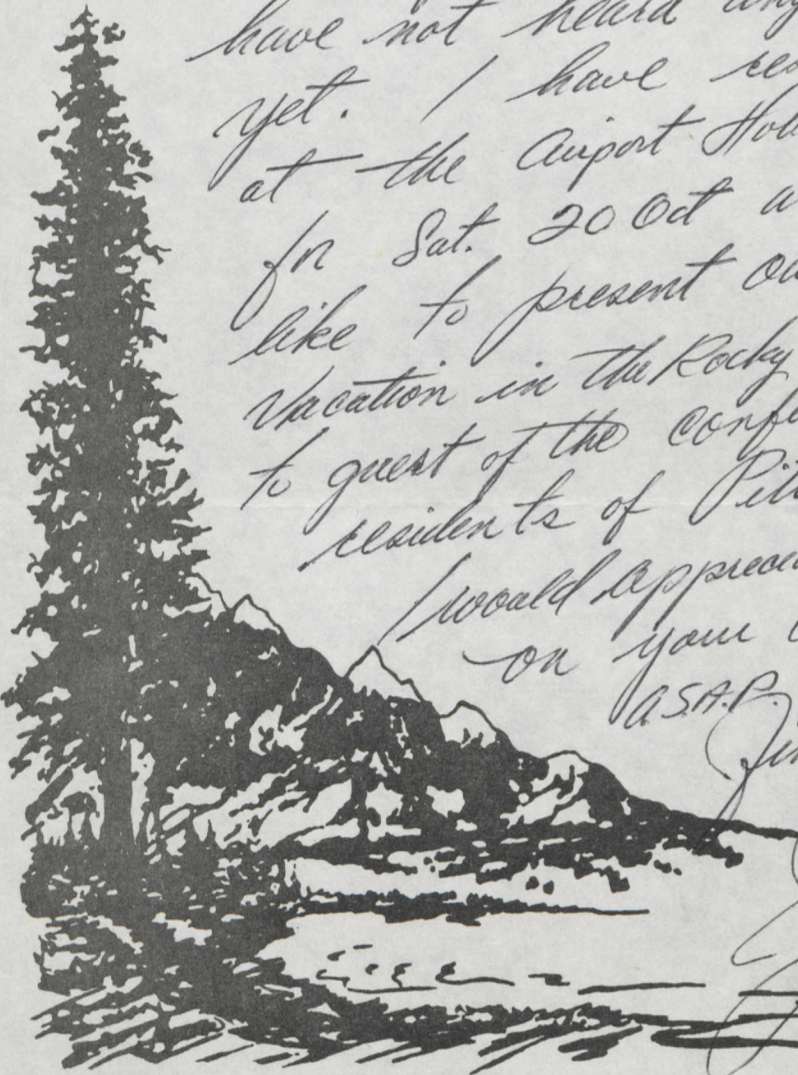 have not heard any
yet. I have res
at the Airport Hol
for Sat. 20 Oct a
like to present ou
Vacation in the Rocky
to guest of the confe
residents of Pit
I would apprecia
on your
A.S.A.P.
Jim